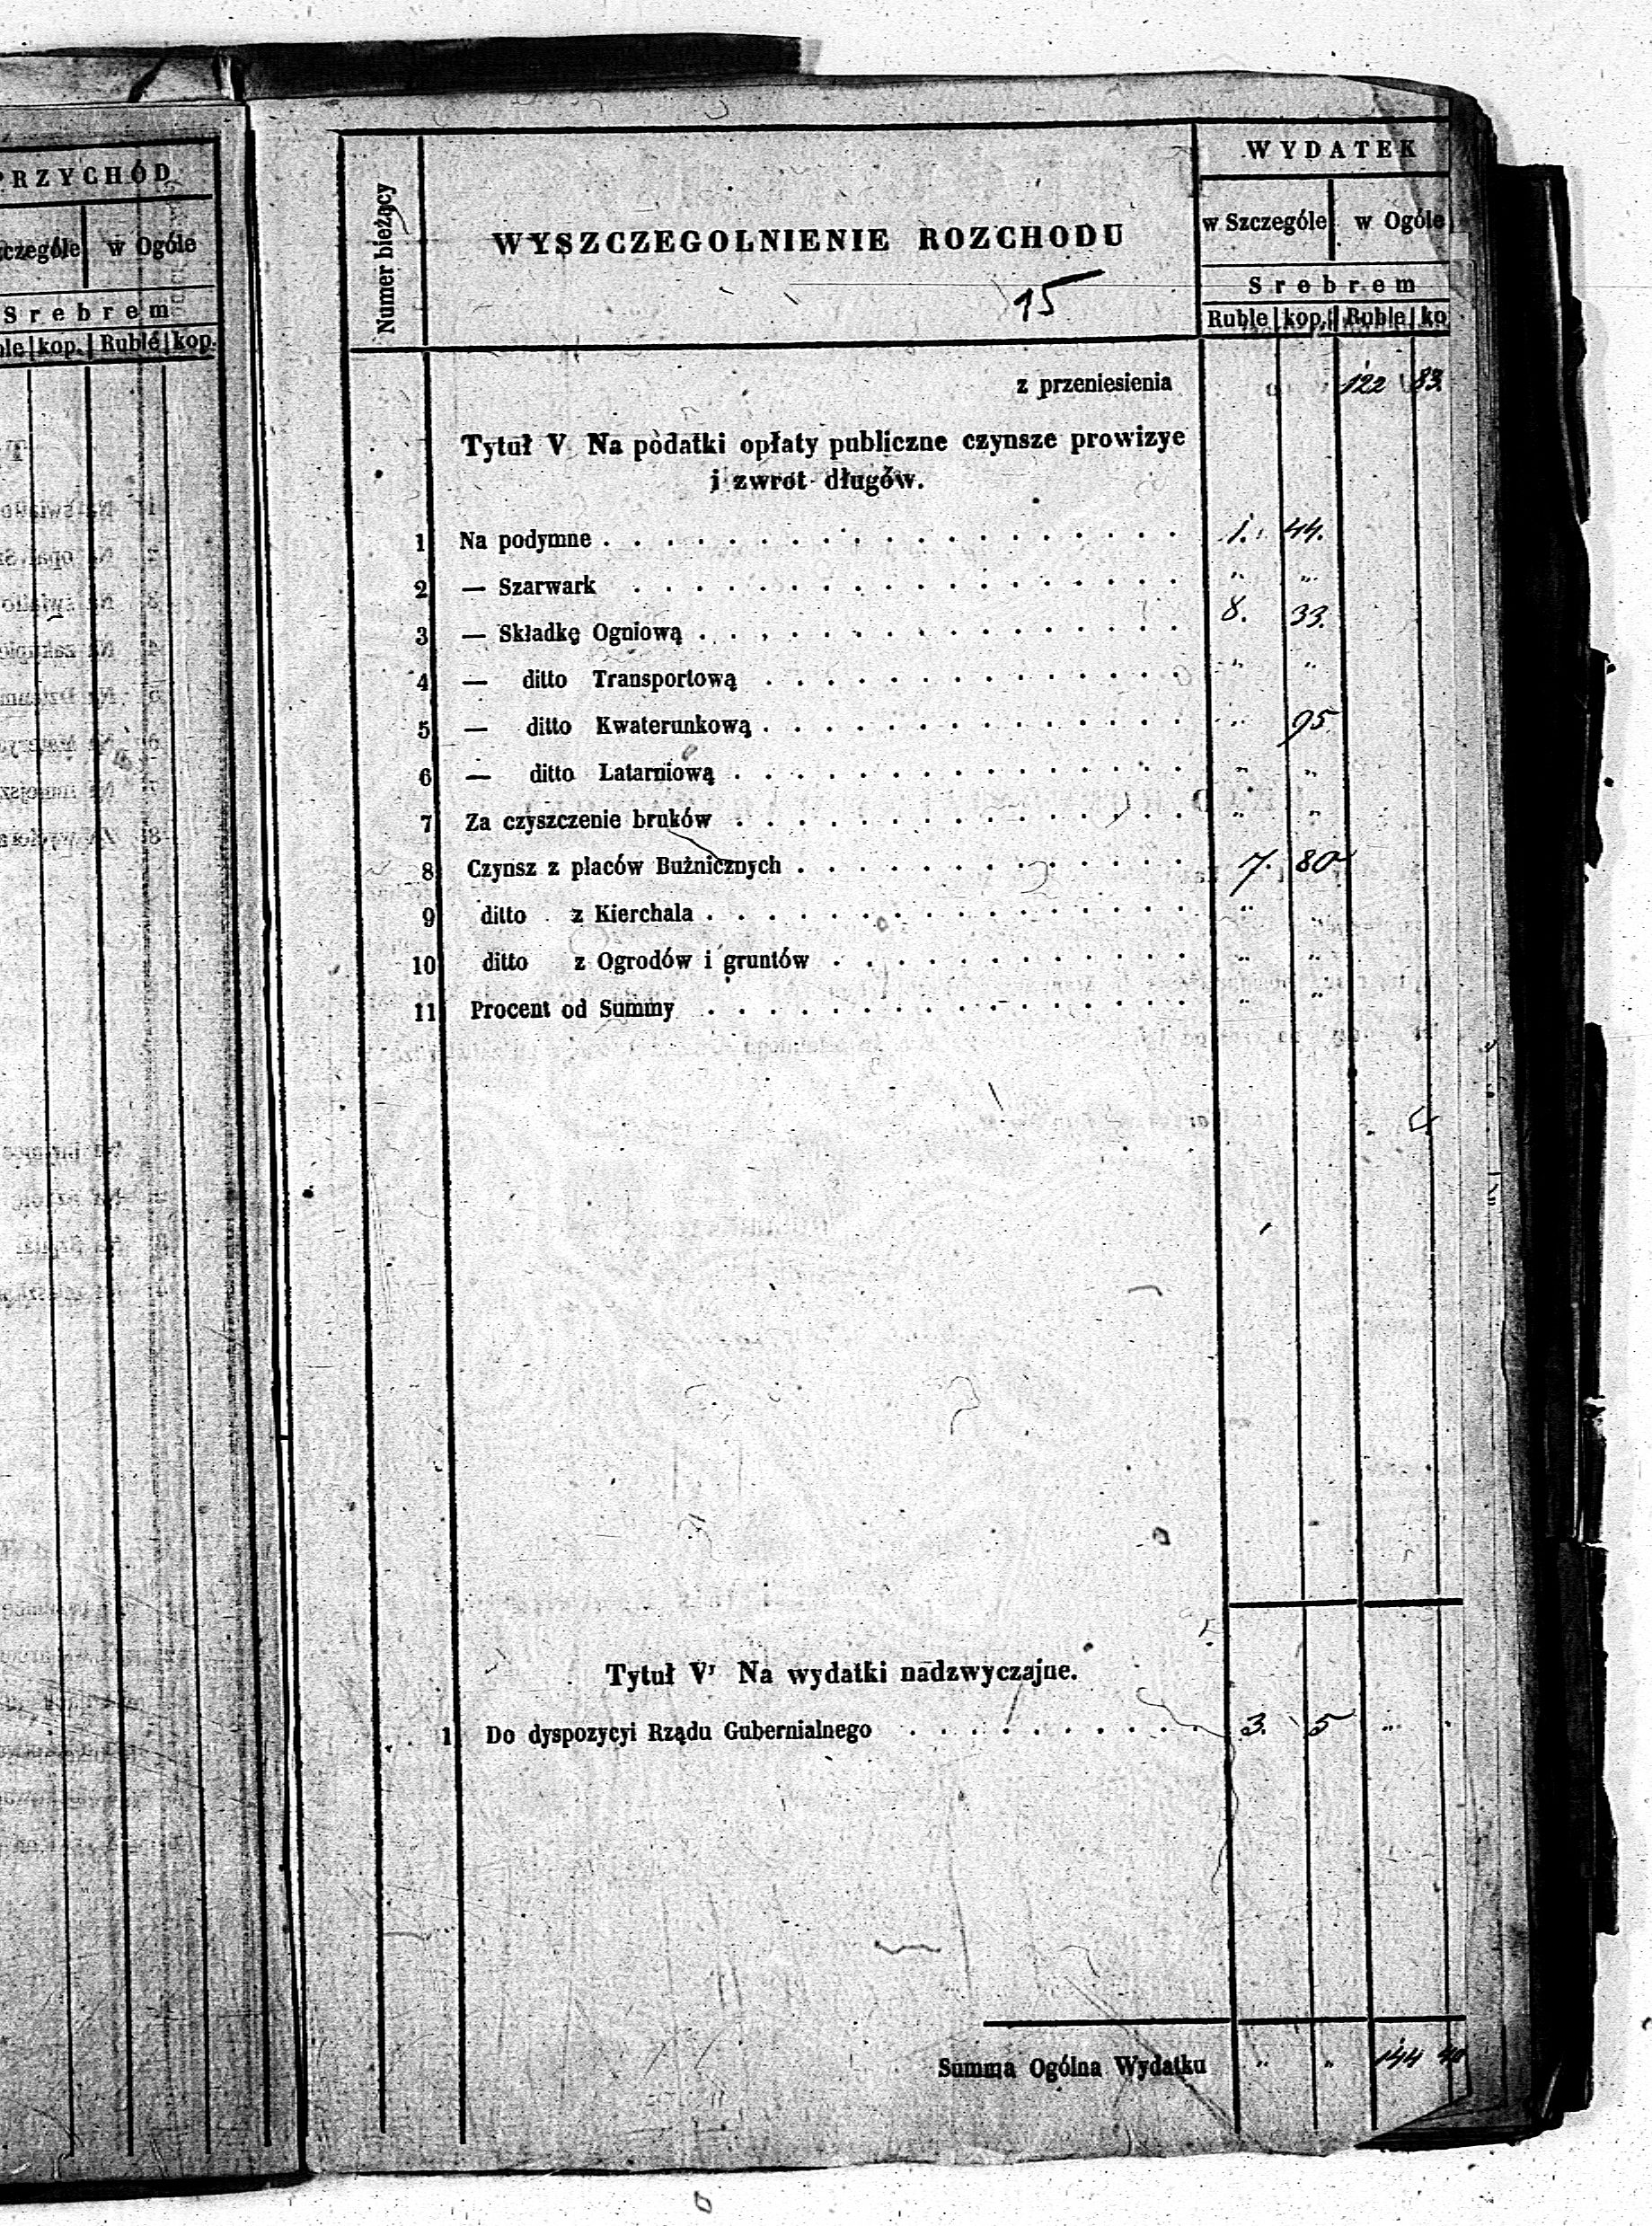 PRZYCHÓD
w Ogóle
Srebrem
kop. Ruble kop.
Numer bieżący
WYSZCZEGOLNIENIE ROZCHODU
15
WYDATEK
w Szczególe w Ogóle
Srebrem
Ruble kop. Ruble ko
z przeniesienia 122 83.
Tytuł V Na podatki opłaty publiczne czynsze prowizye
i zwrot długów.
1 Na podymne . . . 1. 44.
2 — Szarwark . . . " "
3 — Składkę Ogniową . . . 8. 33.
4 — ditto Transportową . . . " "
5 — ditto Kwaterunkową . . . " 95
6 — ditto Latarniową . . . " "
7 Za czyszczenie bruków . . . " "
8 Czynsz z placów Bużnicznych . . . 7. 80
9 ditto z Kierchala . . . " "
10 ditto z Ogrodów i gruntów . . . " "
11 Procent od Summy . . . " "
Tytuł V Na wydatki nadzwyczajne.
1 Do dyspozycyi Rządu Gubernialnego . . . 3. 5 "
Summa Ogólna Wydatku " " 144 40